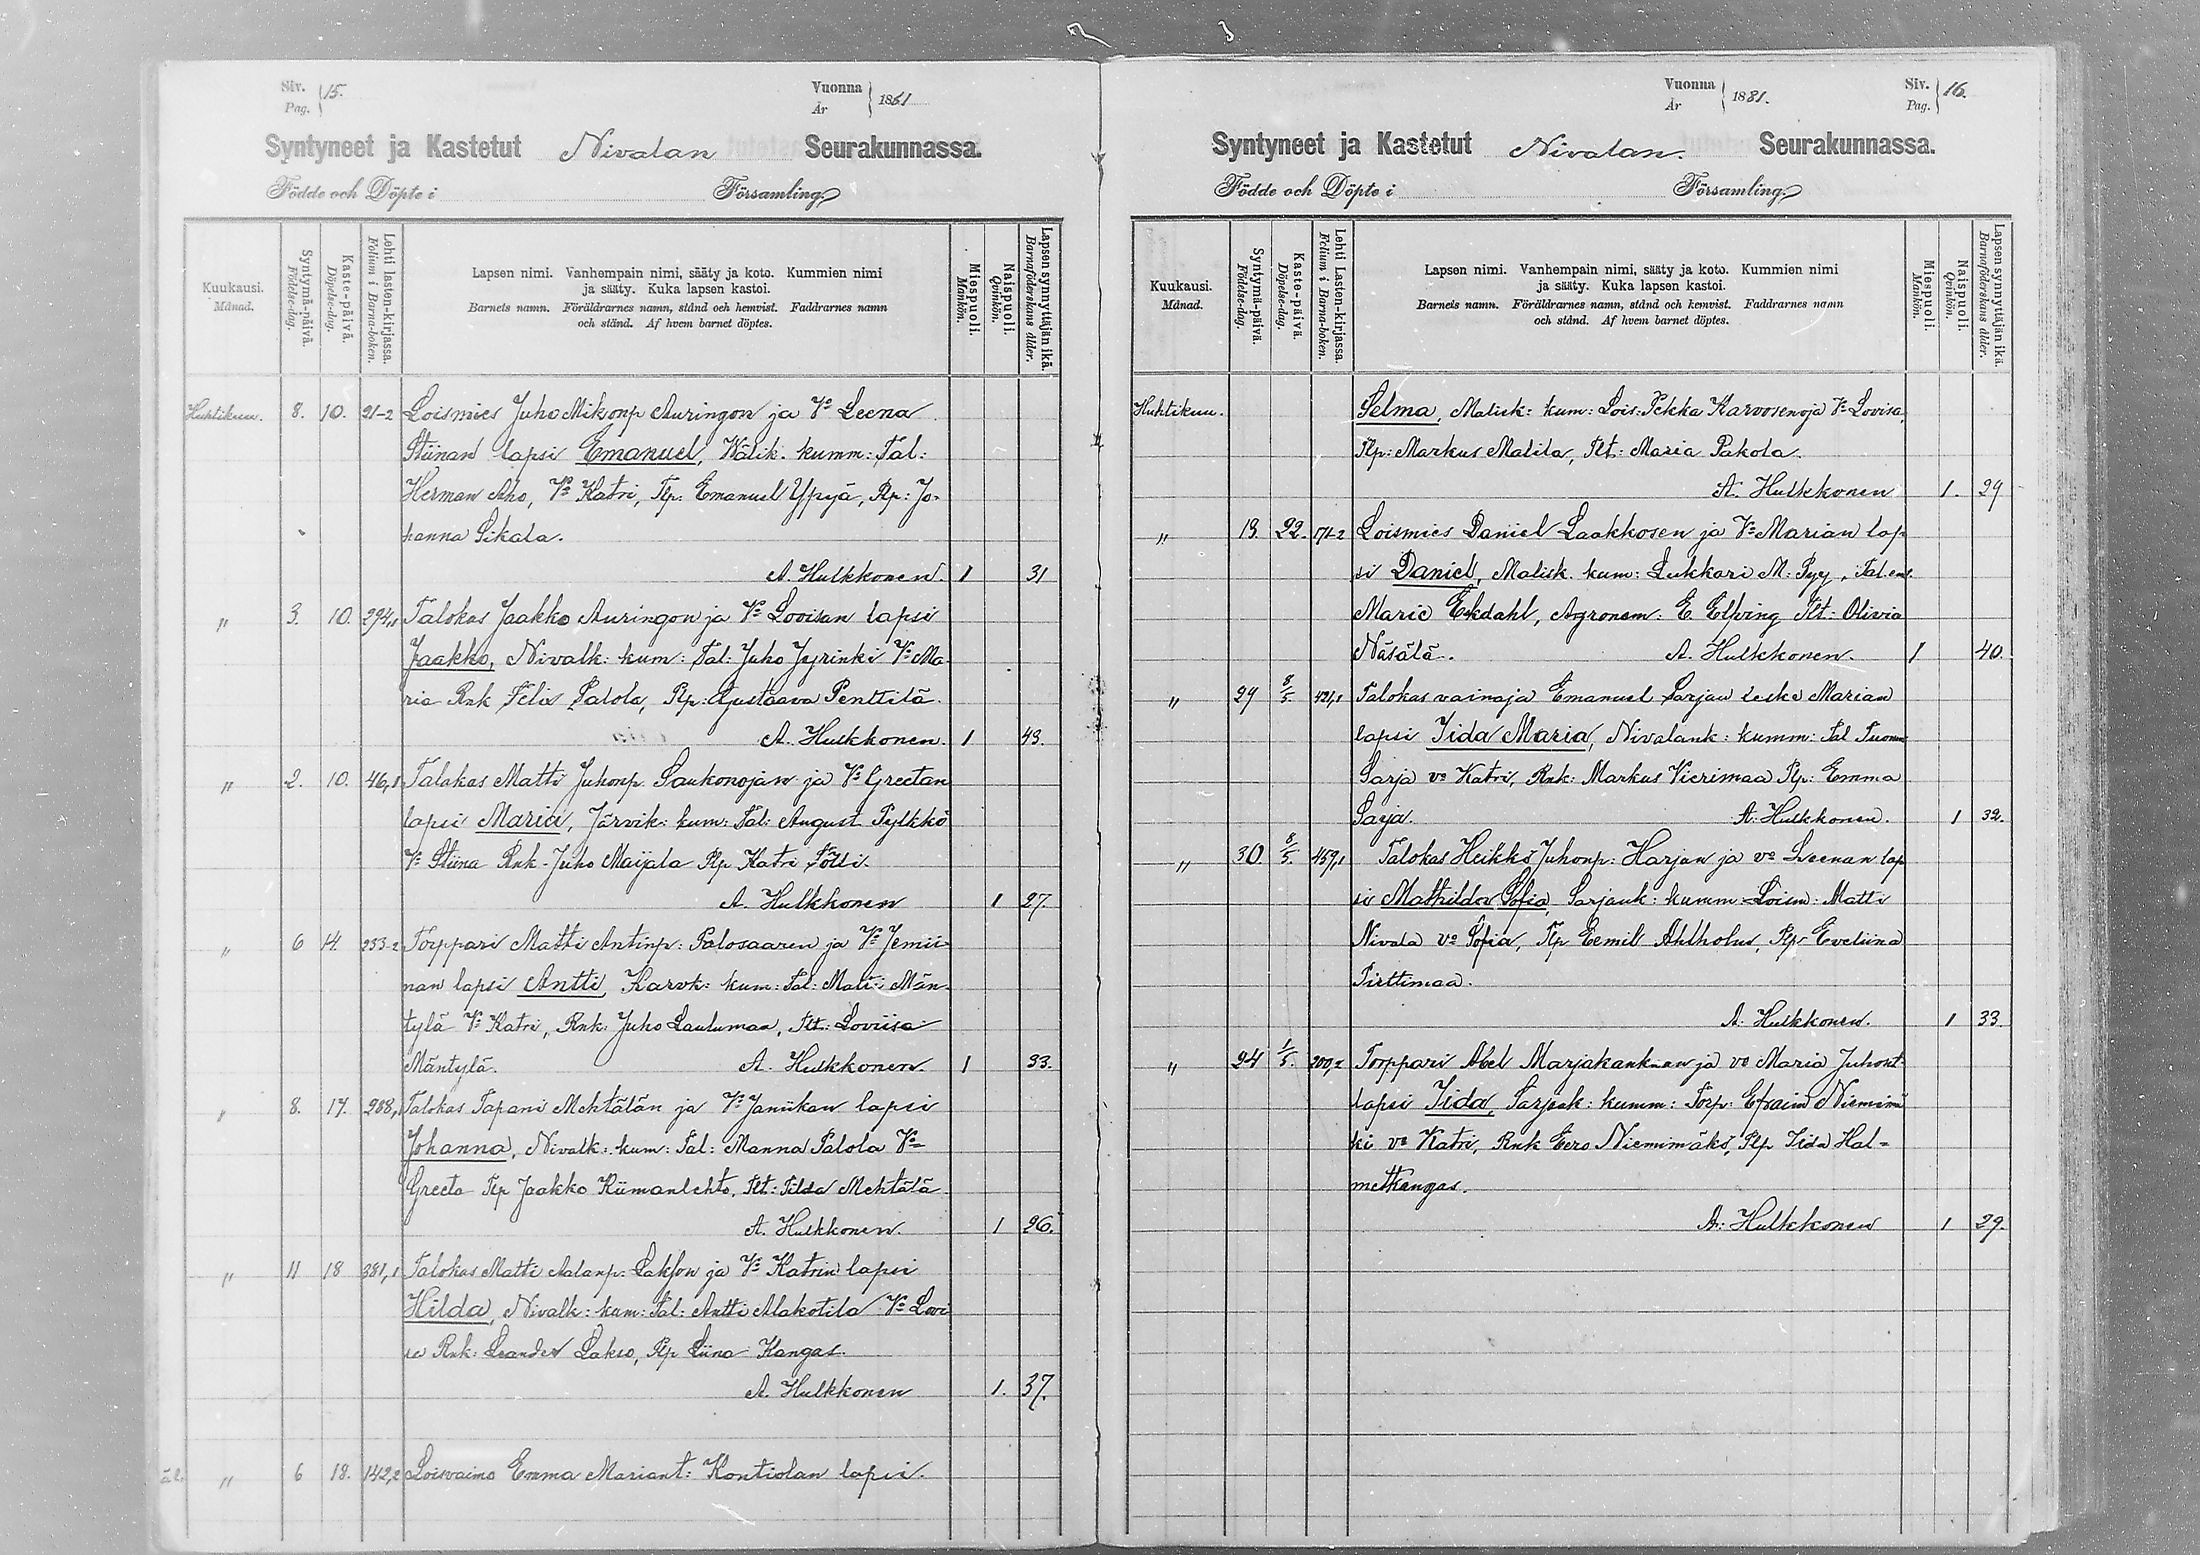 Siv. Pag. 15.
Vuonna År 1881
Syntyneet ja Kastetut Nivalan Seurakunnassa.
Födde och Döpte i Församling
Kuukausi. Månad.
Syntymä-päivä. Födelse-dag.
Kaste-päivä. Döpelse-dag.
Lehti lasten-kirjassa. Folium i Barna-boken.
Lapsen nimi. Vanhempain nimi, sääty ja koto. Kummien nimi
ja sääty. Kuka lapsen kastoi.
Barnets namn. Föräldrarnes namn, stånd och hemvist. Faddrarnes namn
och stånd. Af hvem barnet döptes.
Miespuoli. Mankön.
Naispuoli. Qvinkön.
Lapsen synnyttäjän ikä. Barnaföderskans ålder.
Huhtikuu. 8. 10. 21-2 Loismies Juho Mikonp Auringon ja Vo Leena
Stiinan lapsi Emanuel, Wälik. kumm: Tal:
Herman Aho, Vo Katri, Tlp: Emanuel Ypyä, Plp: Jo-
hanna Sikala.
A. Hulkkonen. 1 31
" 3. 10. 294,1 Talokas Jaakko Auringon ja Vo Lovisan lapsi
Jaakko, Nivalk: kum: Tal: Juho Jyrinki Vo Ma
ria Rnk Felix Palola, Plp: Kustaava Penttilä.
A. Hulkkonen. 1 43.
" 2. 10. 46,1 Talokas Matti Juhonp. Saukonojan ja Vo Greetan
lapsi Maria, Järvik: kum: Tal: August Pylkkö
Vo Stiina Rnk. Juho Maijala Plp Katri Pölli.
A. Hulkkonen 1 27.
" 6 14. 233-2 Torppari Matti Antinp: Palosaaren ja Vo Jemii-
nan lapsi Antti, Karvk: kum: Tal: Matti Män-
tylä Vo Katri, Rnk: Juho Laulumaa, Tlt: Loviisa
Mäntylä. A. Hulkkonen. 1 33.
" 8. 17. 288,1 Talokas Tapani Mehtälän ja Vo Janiikan lapsi
Johanna, Nivalk: kum: Tal: Manna Palola Vo
Greeta Tlp Jaakko Riimanlehto, Tlt: Tilda Mehtälä
A. Hulkkonen. 1 26.
" 11 18 381,1 Talokas Matti Adamp: Lakson ja Vo Katrin lapsi
Hilda, Nivalk: kum: Tal: Antti Alakotila Vo Lovi
sa Rnk: Leander Lakso, Plp Liina Kangas.
A. Hulkkonen 1. 37.
äl. " 6 18. 142,2 Loisvaimo Emma Mariant: Kontiolan lapsi.
Vuonna År 1881.
Siv. Pag. 16.
Syntyneet ja Kastetut Nivalan. Seurakunnassa.
Födde och Döpte i Församling
Kuukausi. Månad.
Syntymä-päivä. Födelse-dag.
Kaste-päivä. Döpelse-dag.
Lehti Lasten-kirjassa. Folium i Barna-boken.
Lapsen nimi. Vanhempain nimi, sääty ja koto. Kummien nimi
ja sääty. Kuka lapsen kastoi.
Barnets namn. Föräldrarnes namn, stånd och hemvist. Faddrarnes namn
och stånd. Af hvem barnet döptes.
Miespuoli. Mankön.
Naispuoli. Qvinkön.
Lapsen synnyttäjän ikä. Barnaföderskans ålder.
Huhtikuu. Selma, Malisk: kum: Lois: Pekka Karvosenoja Vo Lovisa,
Tlp: Markus Malila, Tlt: Maria Pakola.
A. Hulkkonen 1. 29
" 13 22. 171-2 Loismies Daniel Laakkosen ja Vo Marian lap
si Daniel, Malisk. kum: Lukkari M: Pyy, Tal.em.
Marie Ekdahl, Agronom: E. Elfving Tlt: Olivia
Näsälä. A. Hulkkonen. 1 40.
" 29 8/5. 421,1 Talokas vainaja Emanuel Sarjan leske Marian
lapsi Iida Maria, Nivalank: kumm: Tal Tuomas
Sarja vo Katri, Rnk: Markus Vierimaa Plp: Emma
Sarja. A. Hulkkonen. 1 32.
" 30. 8/5. 459,1 Talokas Heikki Juhonp: Harjan ja vo Leenan lap
si Mathilda Sofia, Sarjank: kumm: Loism: Matti
Nivala vo Sofia, Tlp Eemil Ahlholm, Plp Eveliina
Pirttimaa.
A. Hulkkonen. 1 33.
" 24 1/5. 200,2 Torppari Abel Marjakankaan ja vo Maria Juhont
lapsi Iida, Sarjank: kumm: Torp: Efraim Niemimä
ki vo Katri, Rnk Eero Niemimäki, Plp Iida Hal-
metkangas.
A. Hulkkonen 1 29.